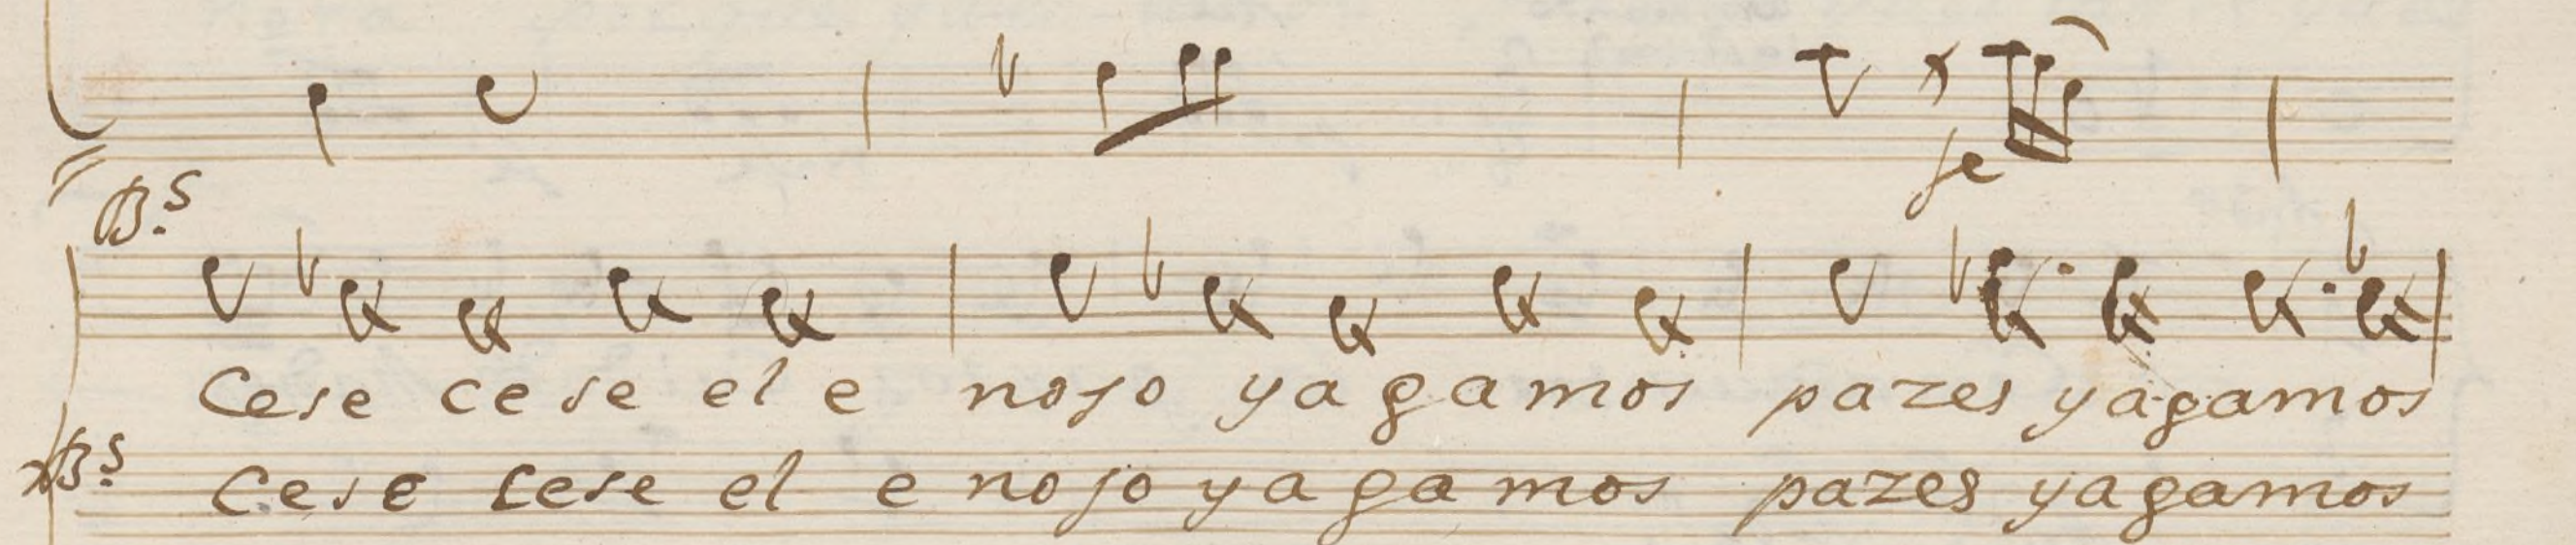 fe
B.s
Cese cese el e nojo y a gamos pazes y agamos
B.s
Cese cese el e nojo y a gamos pazes y agamos